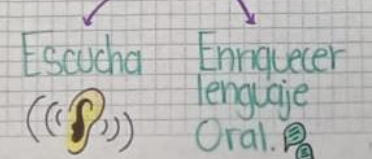 Escucha
Enriquecer
lenguaje
Oral.